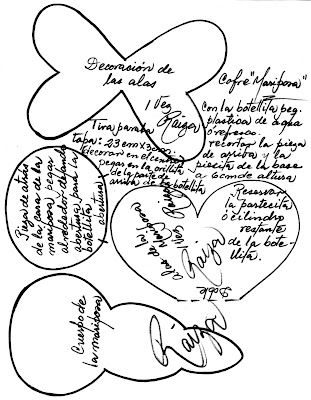 Decoración de
las alas
1 Vez
Raiza
Cofre "Mariposa"
Con la botellita peq.
plastica de agua
o refresco.
recortar la pieza
de arriba y la
piecita de la base
a 6cm de altura
Tira para la
tapa: 23cm x 3cm.
decorar en el centro
pegar en la orilla
de la parte de
arriba de la botellita
Pieza de atrás
de la cara de la
mariposa pegar
alrededor de la
abertura para la
botellita
abertura
Reservar
la partecita
ó cilindro
restante
de la bote-
llita.
alas de la mariposa
1 Vez
Raiza
Raiza
Doble
Cuerpo de
la mariposa
Raiza